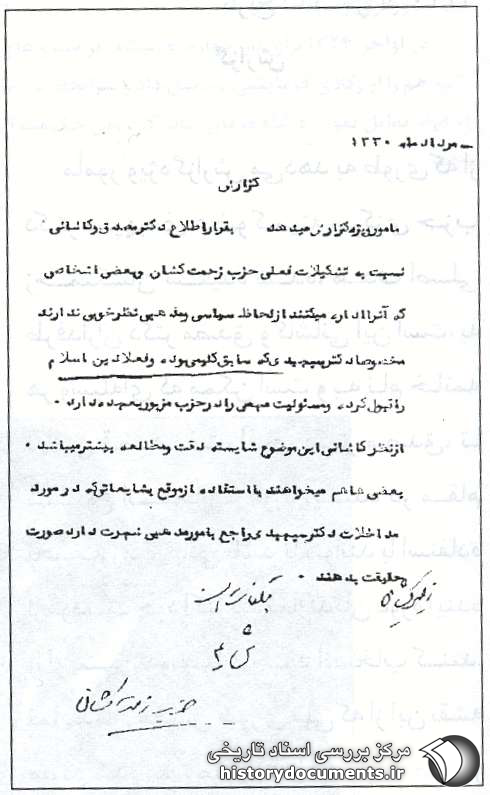 مرداد ماه ۱۳۳۰
گزارش
مامور ویژه گزارش میدهد بقرار اطلاع دکتر مصدق و کاشانی
نسبت به تشکیلات فعلی حزب زحمت کشان و بعضی اشخاص
که آنرا اداره میکنند از لحاظ سیاسی و مذهبی نظر خوبی ندارند
مخصوصا دکتر سپهبدی که سابق کلیمی بوده و فعلا دین اسلام
را قبول کرده و مسئولیت مهمی را در حزب مزبور بعهده دارد .
از نظر کاشانی این موضوع شایسته دقت و مطالعه بیشتر میباشد .
بعضی ها هم میخواهند با استفاده از موقع بشایعاتی که در مورد
مداخلات دکتر سپهبدی راجع بامور مذهبی شهرت دارد صورت
حقیقت بدهند .
حزب زحمتکشان
مرکز بررسی اسناد تاریخی
historydocuments.ir